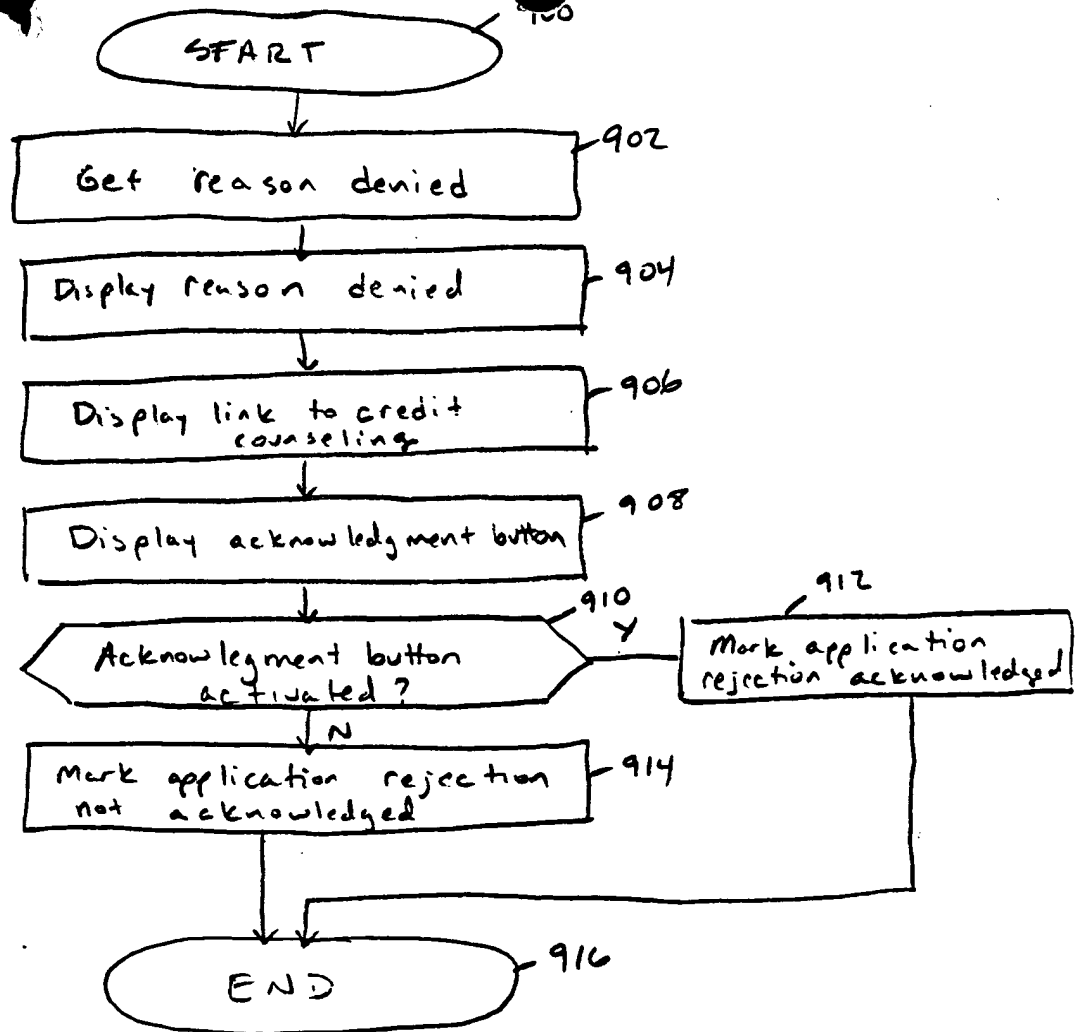 START
902
Get reason denied
904
Display reason denied
906
Display link to credit
counseling
908
Display acknowledgment button
910
Acknowlegment button
activated?
Y
912
Mark application
rejection acknowledged
N
914
Mark application rejection
not acknowledged
916
END